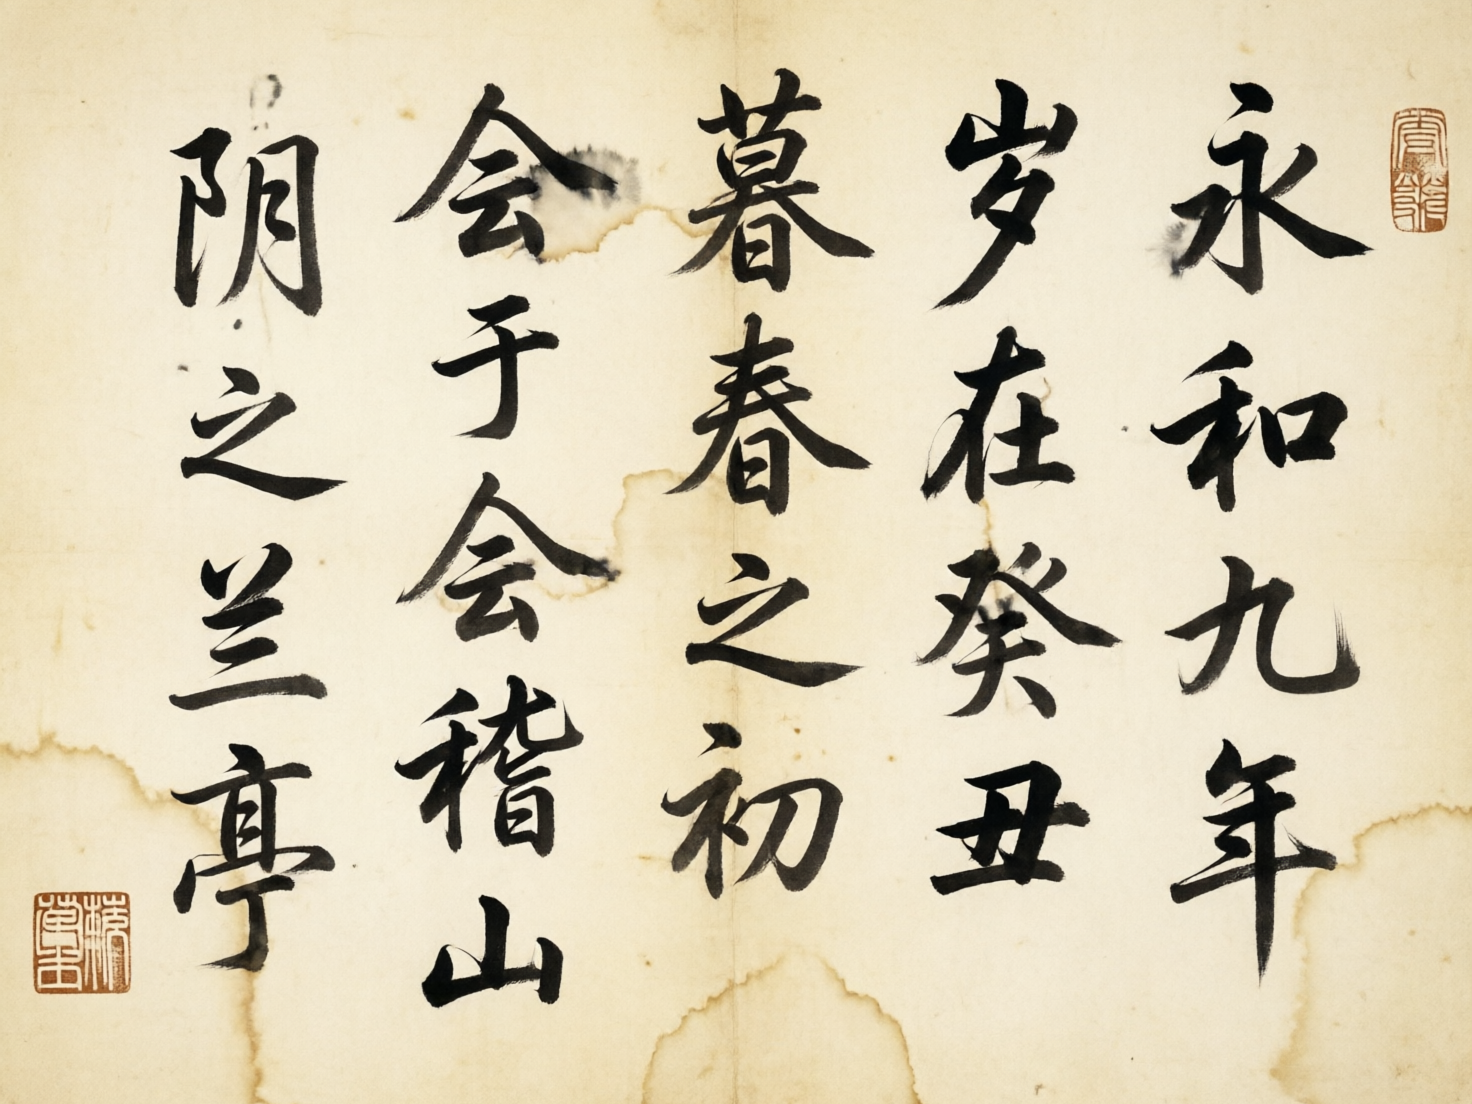 永和九年
岁在癸丑
暮春之初
会于会稽山
阴之兰亭